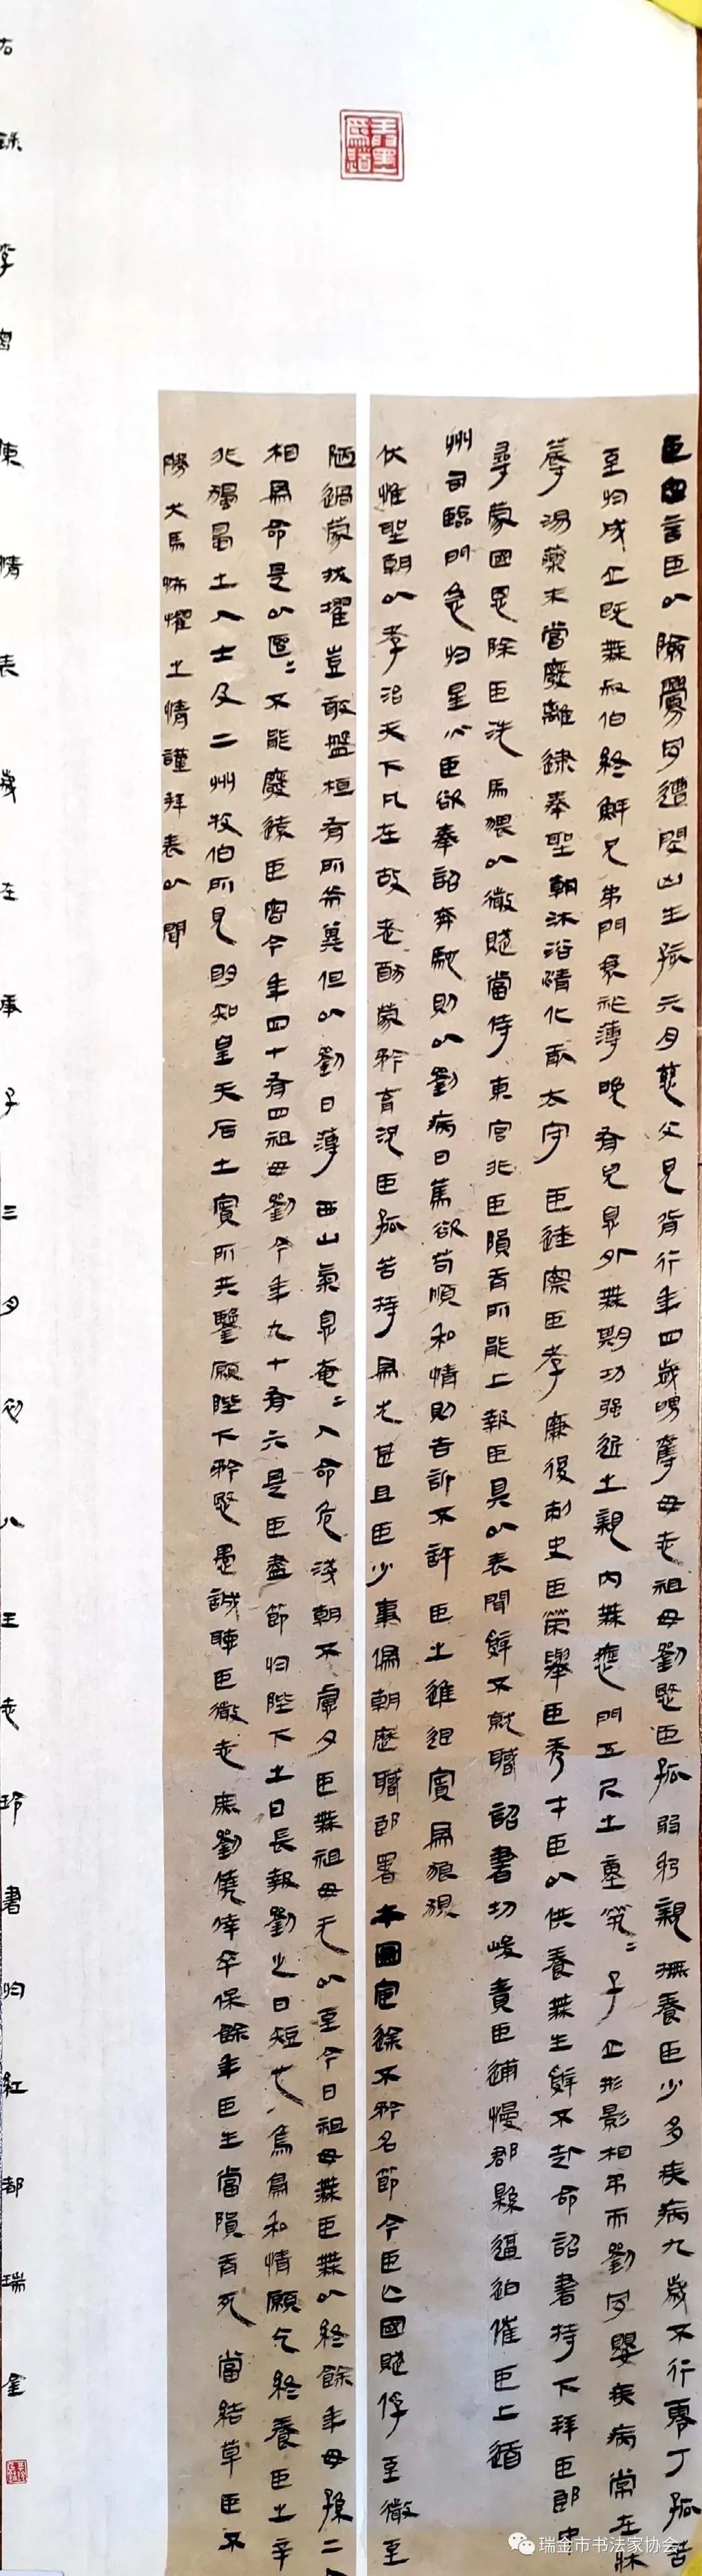 臣密言臣以險釁夙遭閔凶生孩六月慈父見背行年四歲舅奪母志祖母劉愍臣孤弱躬親撫養臣少多疾病九歲不行零丁孤苦
至於成立既無叔伯終鮮兄弟門衰祚薄晚有兒息外無期功强近之親內無應門五尺之童煢〻孑立形影相弔而劉夙嬰疾病常在牀
蓐湯藥未嘗廢離逮奉聖朝沐浴清化前太守臣逵察臣孝廉後刺史臣榮舉臣秀才臣以供養無主辭不赴命詔書特下拜臣郎中
尋蒙國恩除臣洗馬猥以微賤當侍東宮非臣隕首所能上報臣具以表聞辭不就職詔書切峻責臣逋慢郡縣逼迫催臣上道
州司臨門急於星火臣欲奉詔奔馳則以劉病日篤欲苟順私情則告訴不許臣之進退實爲狼狽
伏惟聖朝以孝治天下凡在故老猶蒙矜育況臣孤苦特爲尤甚且臣少事僞朝歷職郎署本圖宦達不矜名節今臣亡國賤俘至微至
陋過蒙拔擢豈敢盤桓有所希冀但以劉日薄西山氣息奄〻人命危淺朝不慮夕臣無祖母无以至今日祖母無臣無以終餘年母孫二人
相爲命是以區〻不能廢遠臣密今年四十有四祖母劉今年九十有六是臣盡節於陛下之日長報劉之日短也烏鳥私情願乞終養臣之辛
非獨蜀之人士及二州牧伯所見明知皇天后土實所共鑒願陛下矜愍愚誠聽臣微志庶劉僥倖卒保餘年臣生當隕首死當結草臣不
勝犬馬怖懼之情謹拜表以聞
右録李密陳情表歲在庚子三月初八王志玲書於紅都瑞金
瑞金市书法家协会